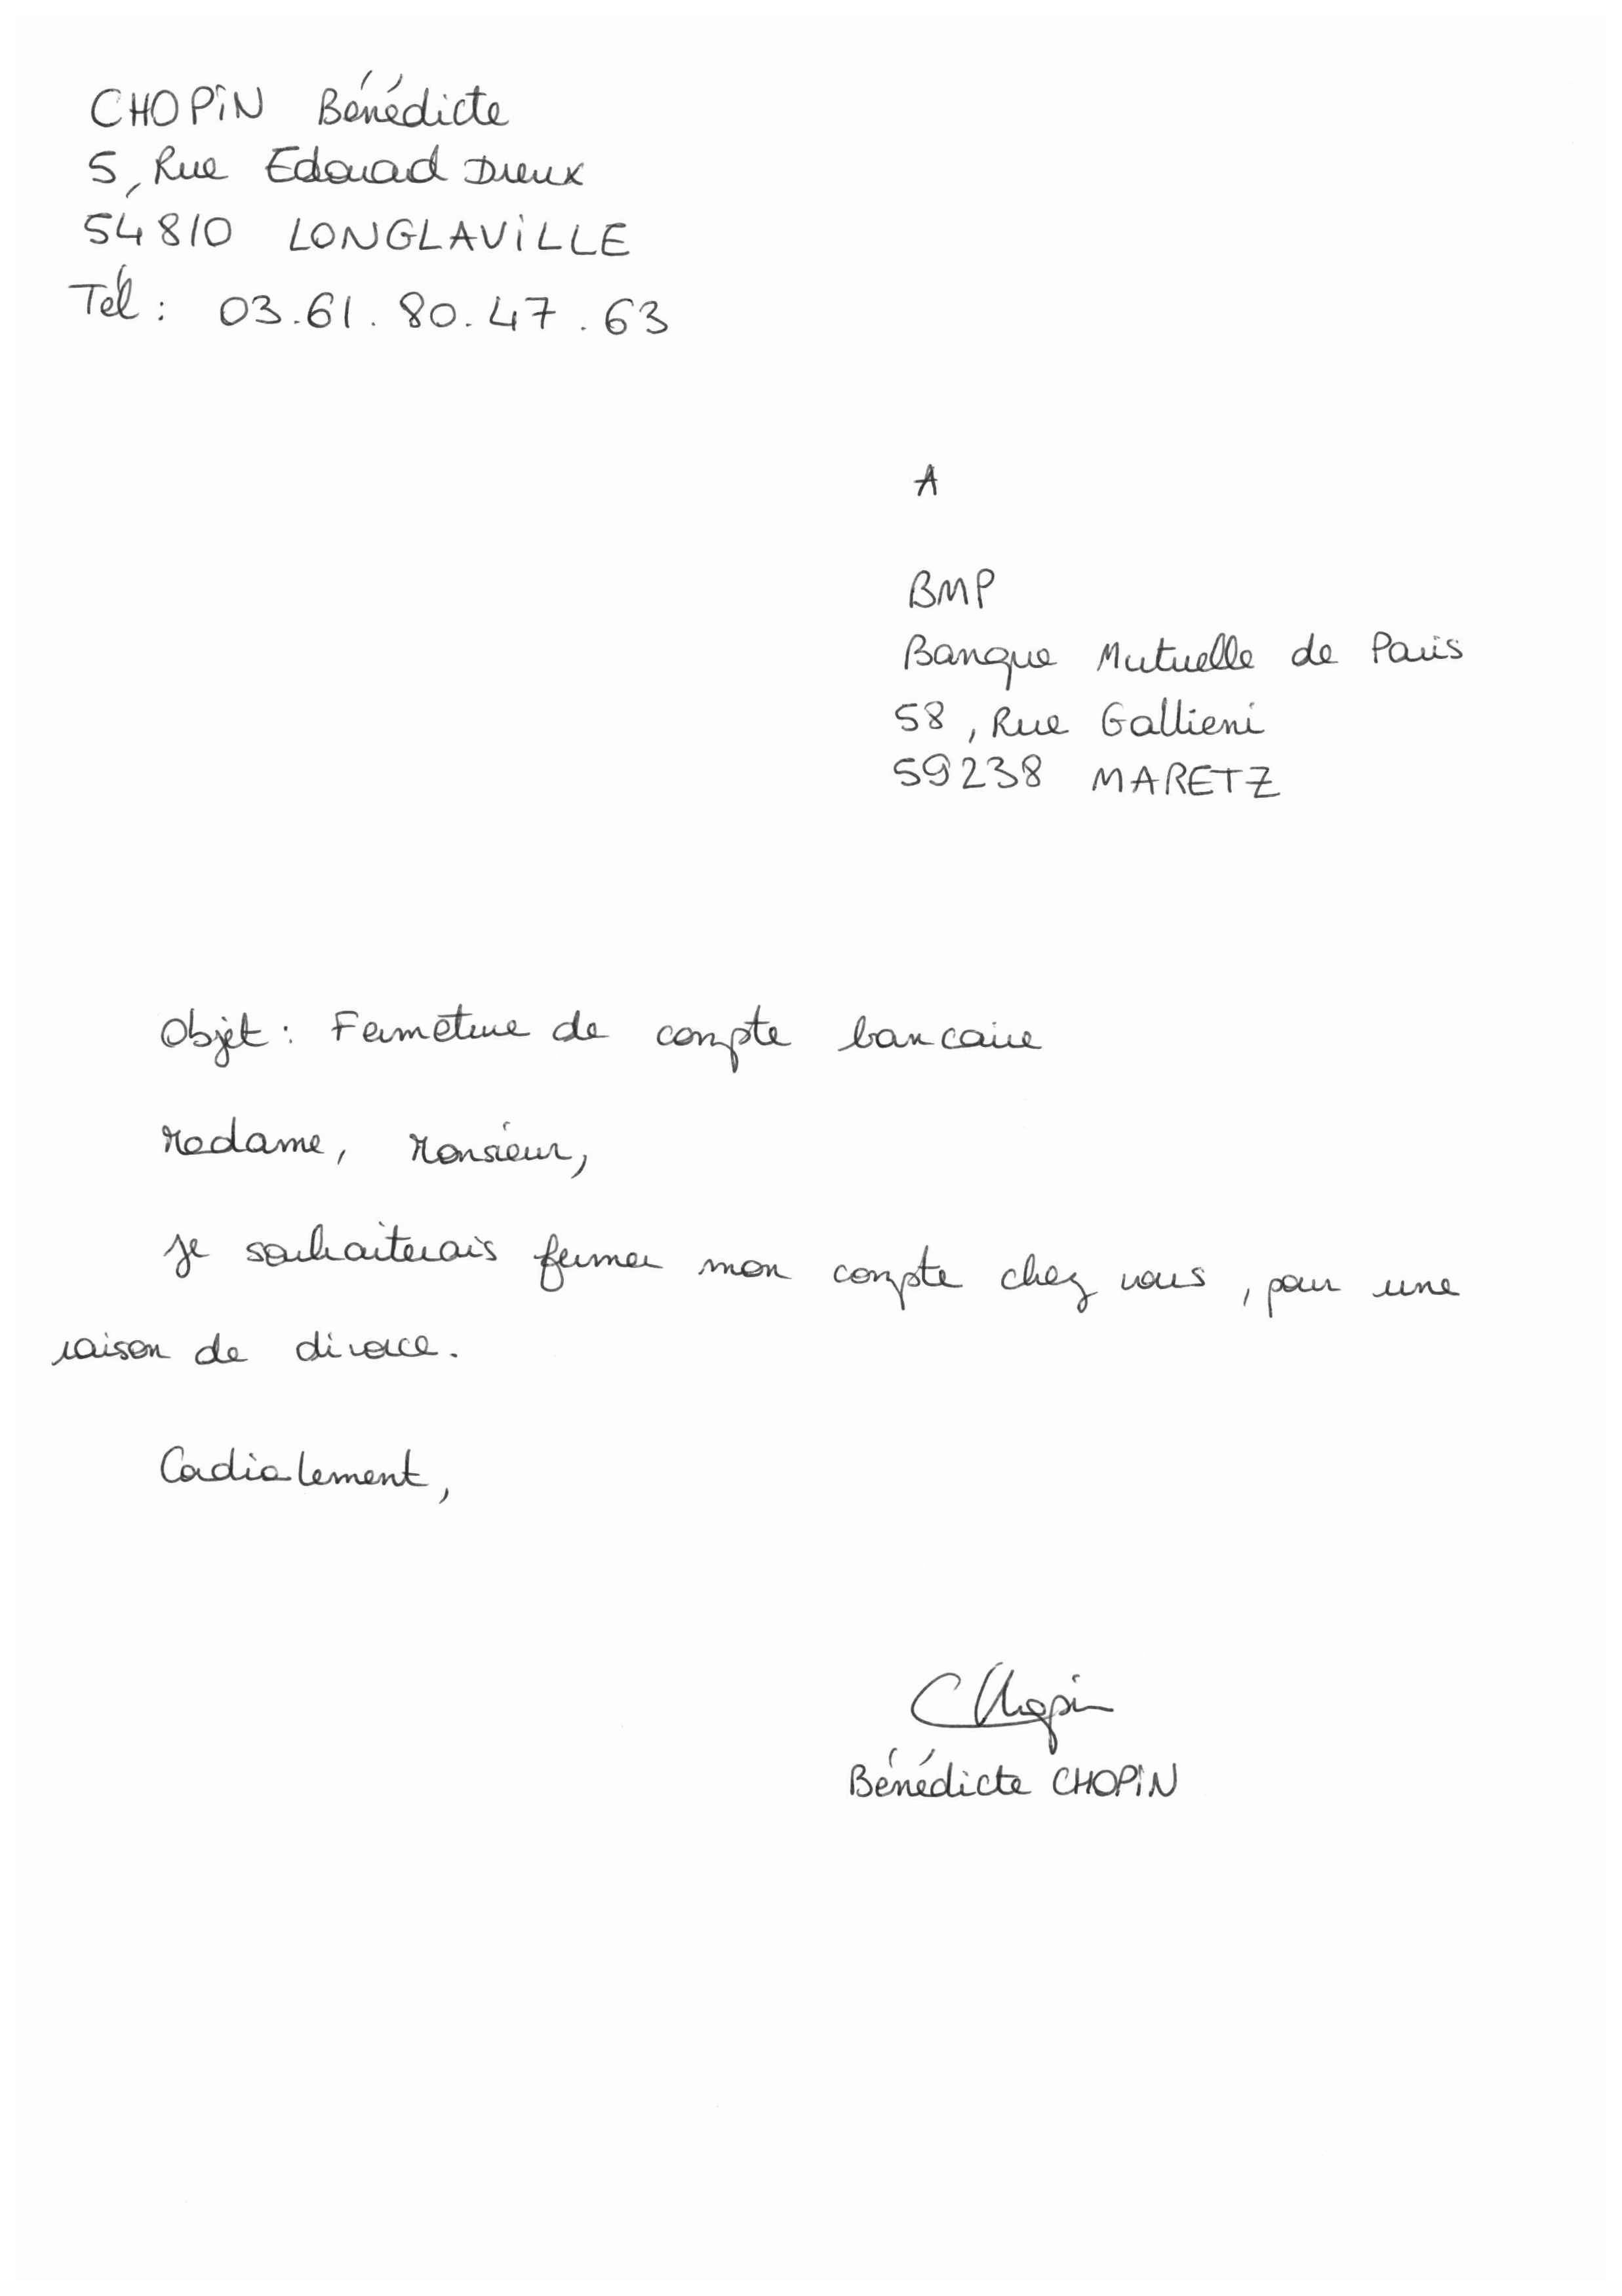 CHOPIN Bénédicte
5, Rue Edouard Dreux
54810 LONGLAVILLE
Tél : 03.61.80.47.63
A
BMP
Banque Mutuelle de Paris
58, Rue Gallieni
59238 MARETZ
Objet : Fermeture de compte bancaire
Madame, Monsieur,
Je souhaiterais fermer mon compte chez vous, pour une
raison de divorce.
Cordialement,
Chopin
Bénédicte CHOPIN